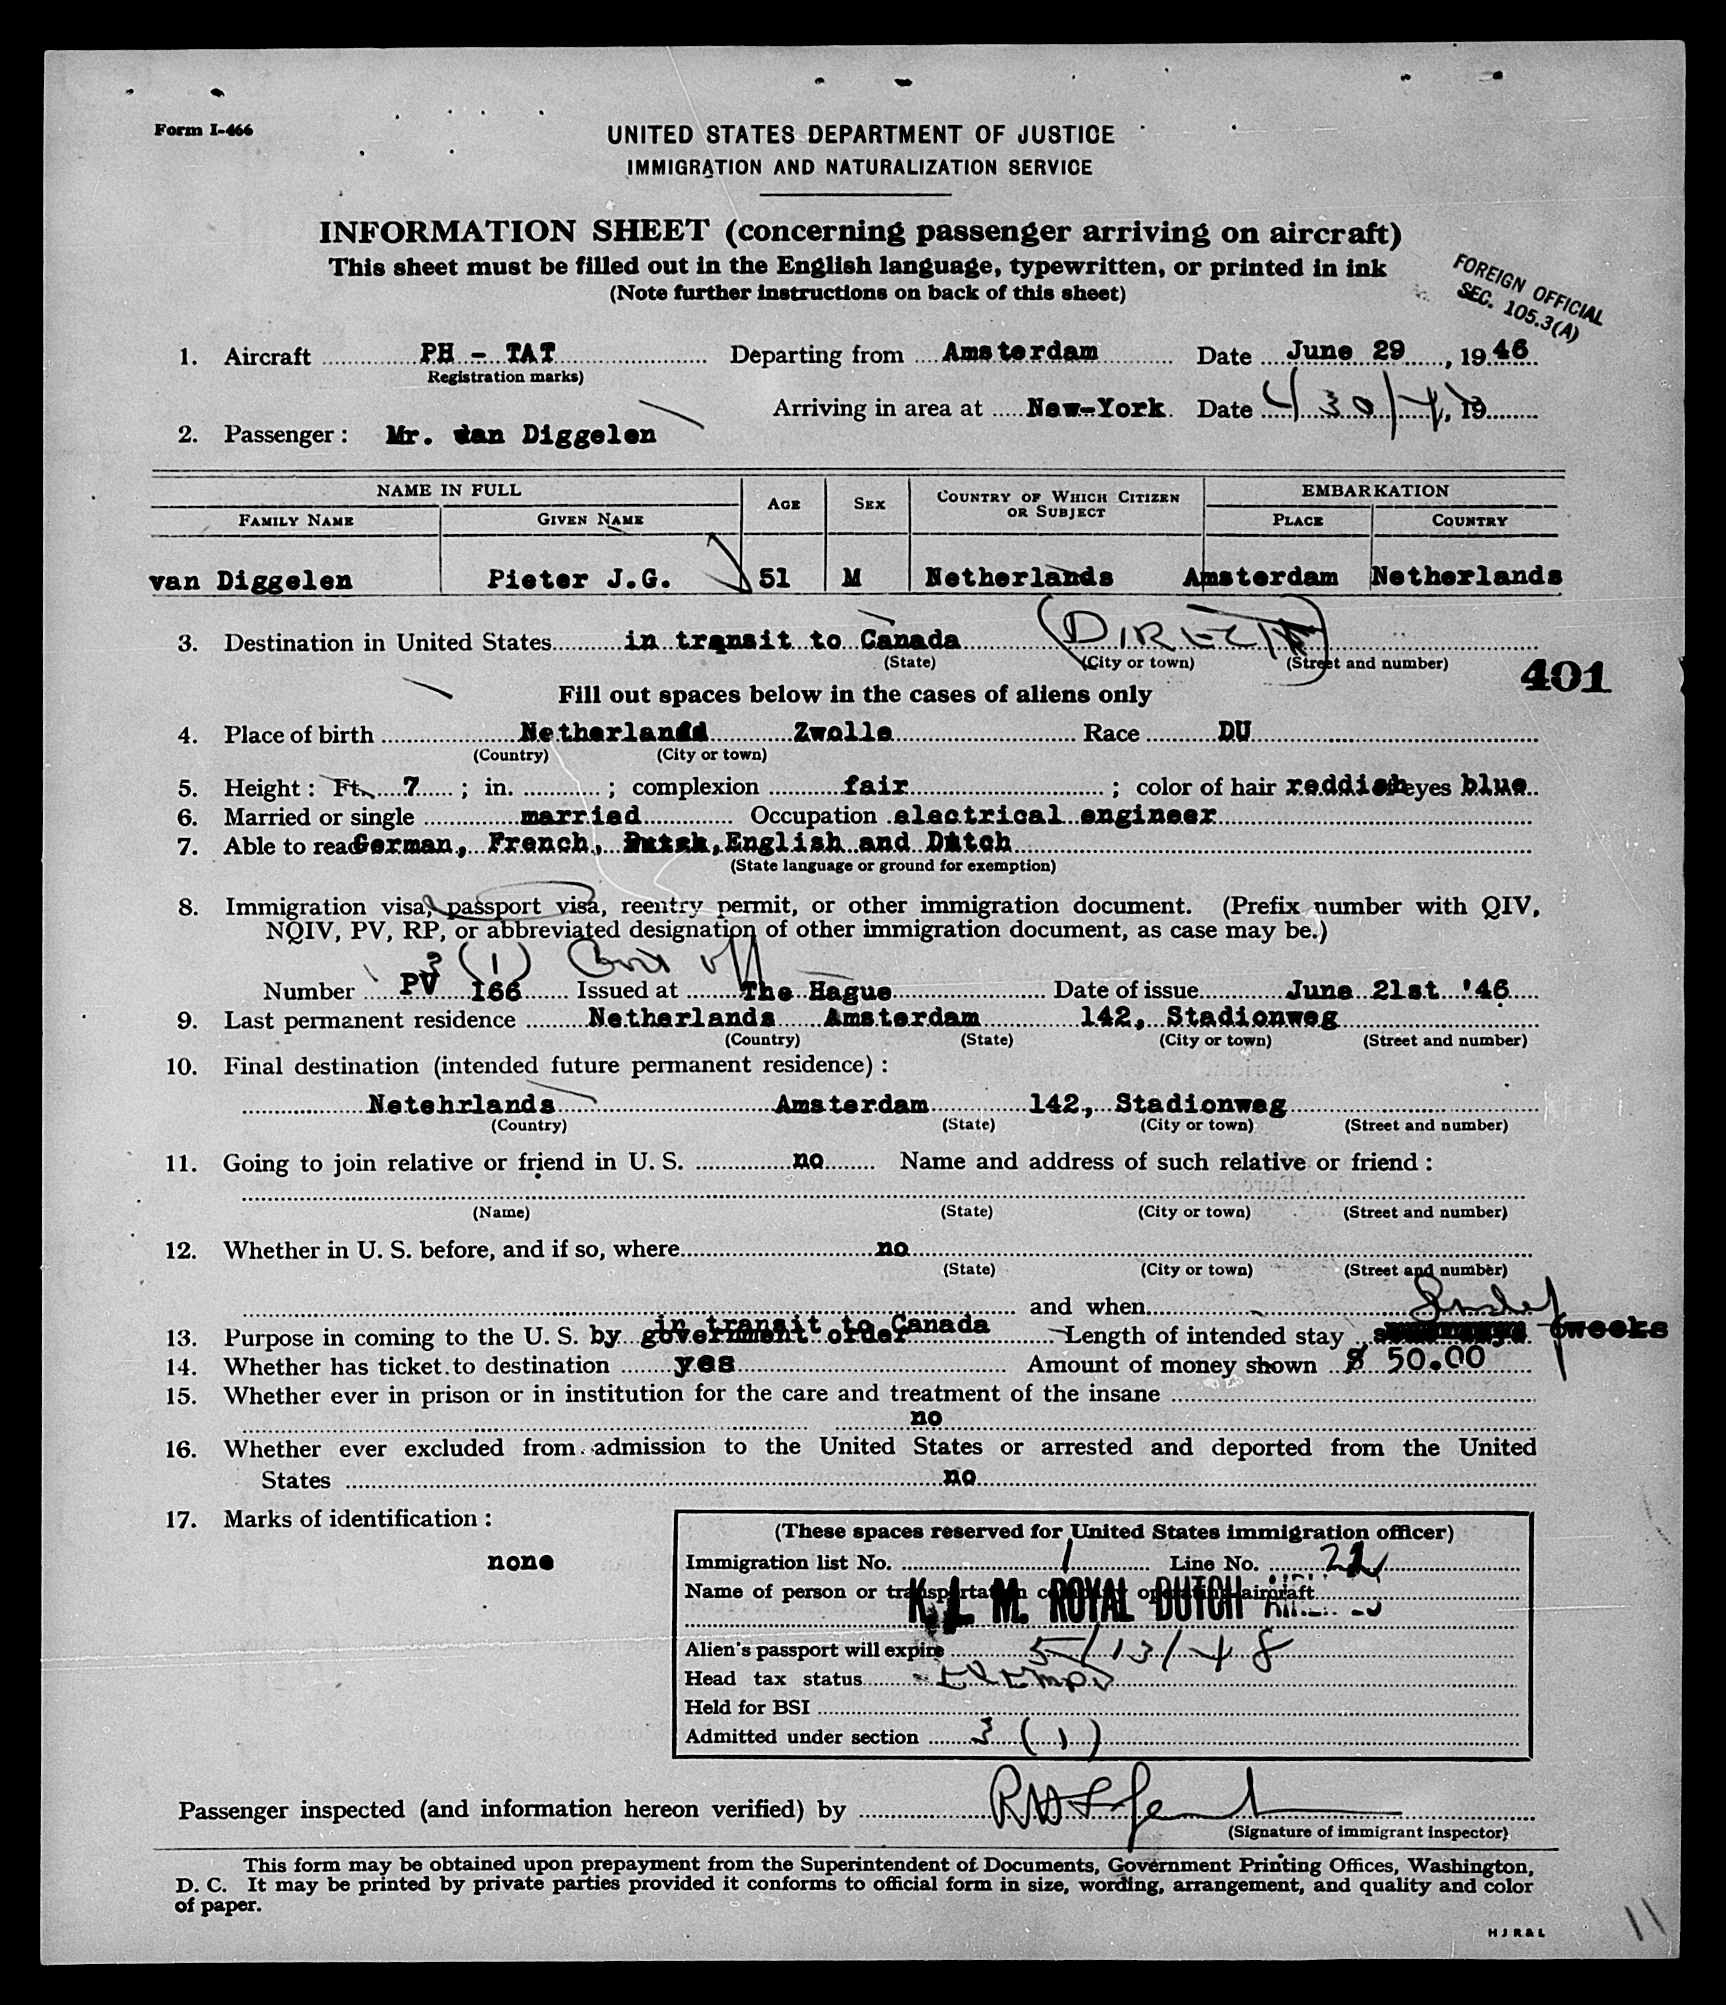 Form I-466
UNITED STATES DEPARTMENT OF JUSTICE
IMMIGRATION AND NATURALIZATION SERVICE
INFORMATION SHEET (concerning passenger arriving on aircraft)
This sheet must be filled out in the English language, typewritten, or printed in ink
(Note further instructions on back of this sheet)
FOREIGN OFFICIAL
SEC. 105.3(A)
1. Aircraft PH - TAT Departing from Amsterdam Date June 29, 1946
Registration marks)
Arriving in area at New-York Date 30 19
2. Passenger: Mr. van Diggelen
NAME IN FULL AGE SEX COUNTRY OF WHICH CITIZEN OR SUBJECT EMBARKATION
FAMILY NAME GIVEN NAME PLACE COUNTRY
van Diggelen Pieter J.G. 51 M Netherlands Amsterdam Netherlands
3. Destination in United States in transit to Canada (DIRECT)
(State) (City or town) (Street and number)
401
Fill out spaces below in the cases of aliens only
4. Place of birth Netherland Zwolle Race DU
(Country) (City or town)
5. Height: Ft. 7; in. ; complexion fair; color of hair reddish eyes blue
6. Married or single married Occupation electrical engineer
7. Able to read German, French, English and Dutch
(State language or ground for exemption)
8. Immigration visa, passport visa, reentry permit, or other immigration document. (Prefix number with QIV,
NQIV, PV, RP, or abbreviated designation of other immigration document, as case may be.)
3 (1)
Number PV 166 Issued at The Hague Date of issue June 21st '46
9. Last permanent residence Netherlands Amsterdam 142, Stadionweg
(Country) (State) (City or town) (Street and number)
10. Final destination (intended future permanent residence):
Netehrlands Amsterdam 142, Stadionweg
(Country) (State) (City or town) (Street and number)
11. Going to join relative or friend in U. S. no Name and address of such relative or friend:
(Name) (State) (City or town) (Street and number)
12. Whether in U. S. before, and if so, where no
(State) (City or town) (Street and number)
and when
in transit to Canada
13. Purpose in coming to the U. S. by government order Length of intended stay 6weeks
14. Whether has ticket to destination yes Amount of money shown $ 50.00
15. Whether ever in prison or in institution for the care and treatment of the insane
no
16. Whether ever excluded from admission to the United States or arrested and deported from the United
States no
17. Marks of identification:
none
(These spaces reserved for United States immigration officer)
Immigration list No. 1 Line No.
Name of person or transportation company operating aircraft
K. L. M. ROYAL DUTCH AIRLINES
Alien's passport will expire 5/13/48
Head tax status exempt
Held for BSI
Admitted under section 3 (1)
Passenger inspected (and information hereon verified) by
(Signature of immigrant inspector)
This form may be obtained upon prepayment from the Superintendent of Documents, Government Printing Offices, Washington,
D. C. It may be printed by private parties provided it conforms to official form in size, wording, arrangement, and quality and color
of paper.
H J R & L
11